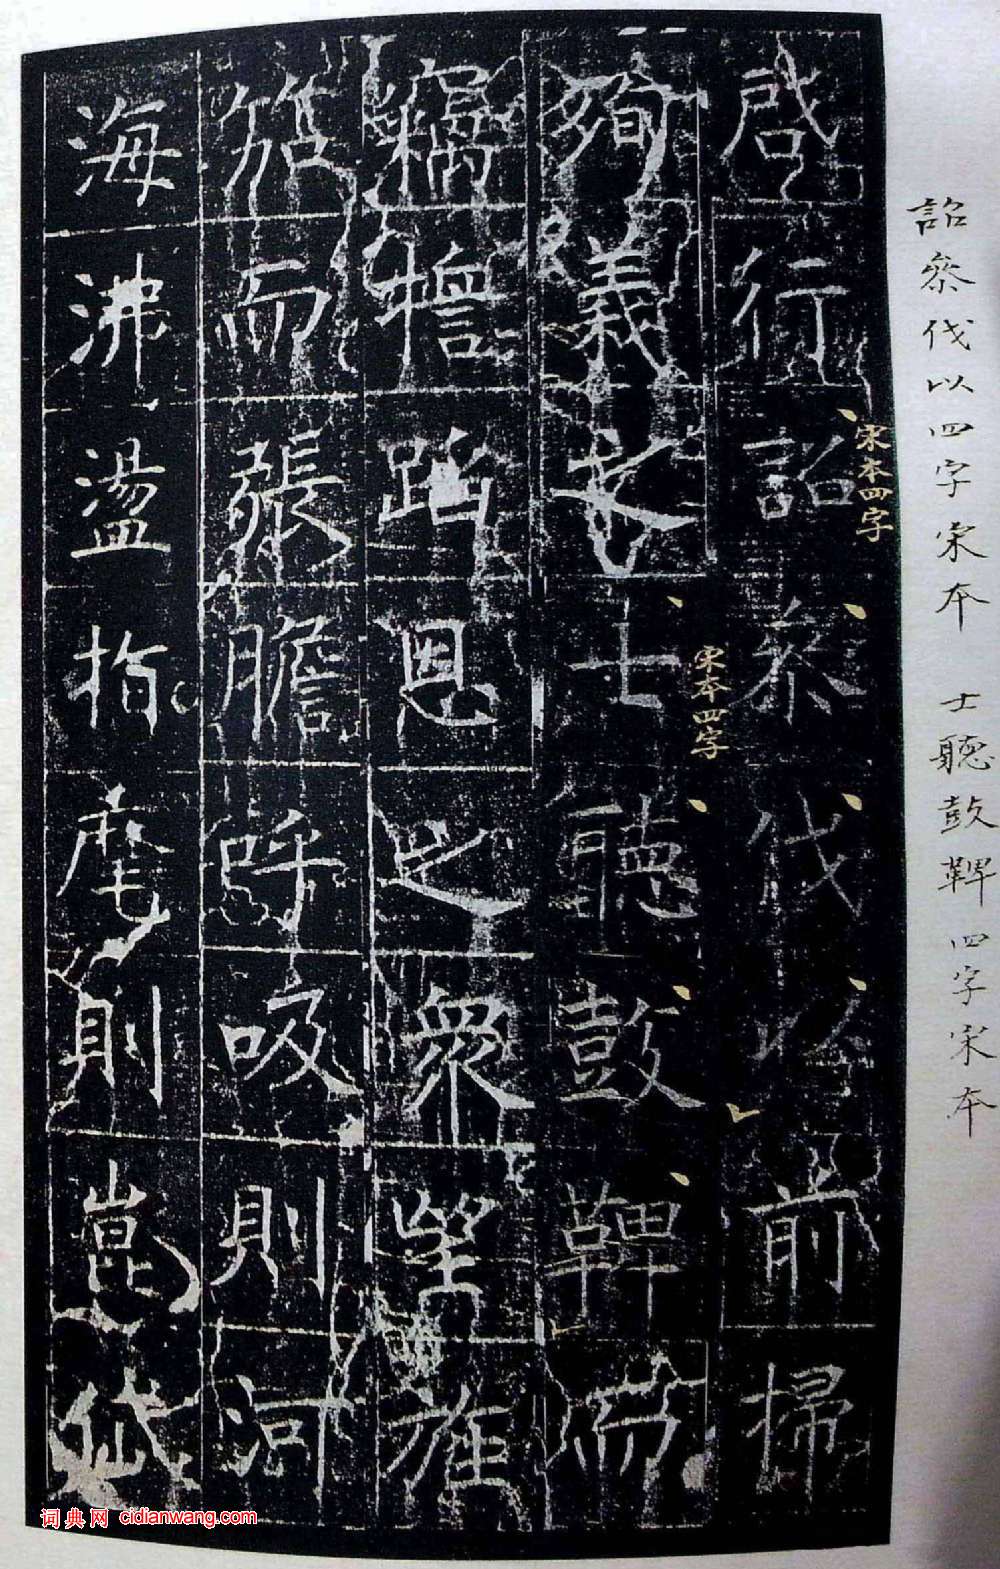 詔參伐以四字宋本 士聽鼓鞞四字宋本
啓行詔參伐以前掃
宋本四字
殉義之士聽鼓鞞而
宋本四字
竊蹈恩之衆望旌
笳而張膽呼吸則河
海沸盪指麾則崑岱
词典网 cidianwang.com